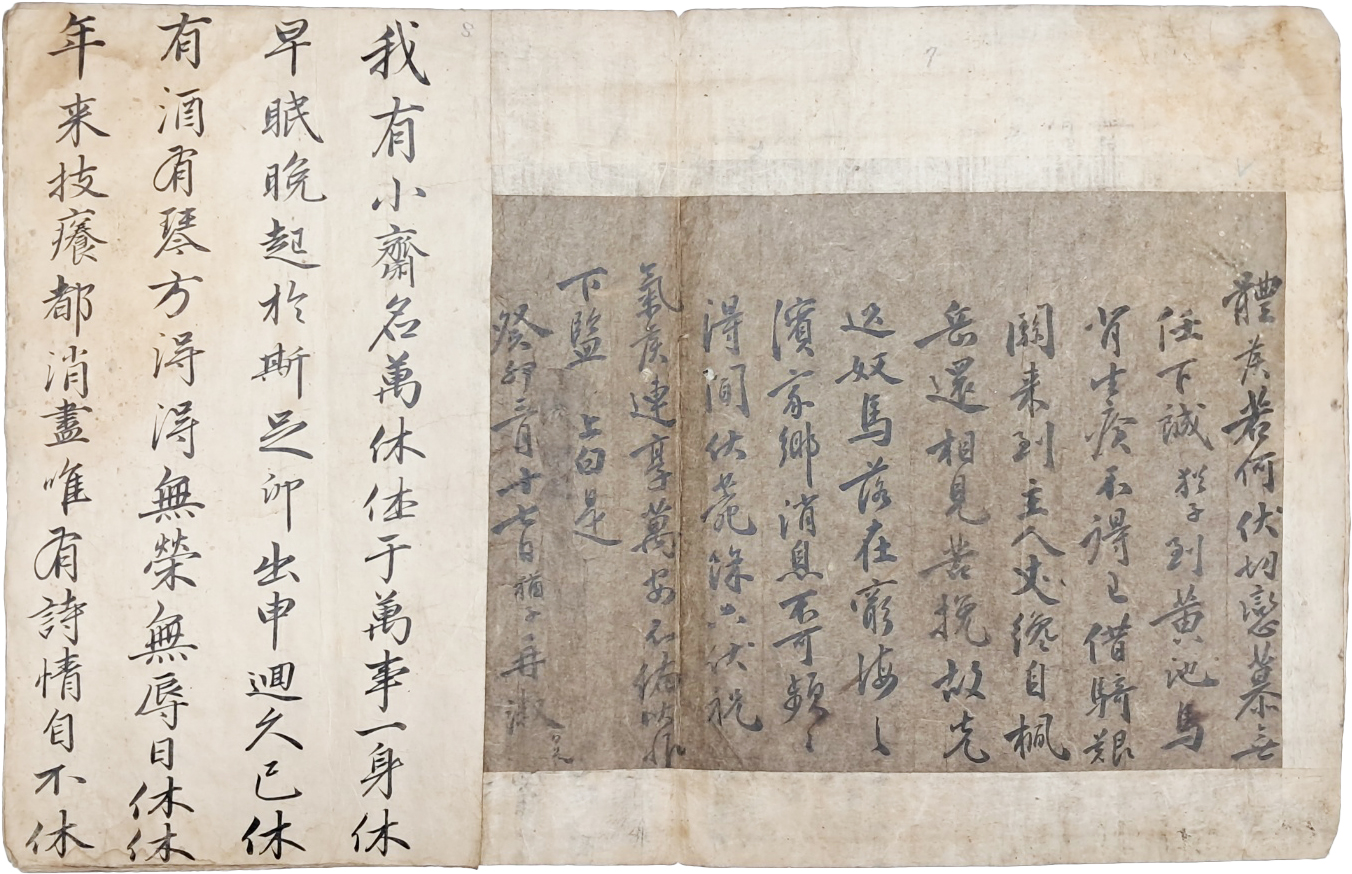 體候若何伏切戀慕無
任下誠猶子到黃池馬
背生瘡不得已借騎艱
關来到主人丈纔自楓
岳還相見苦挽故先
送奴馬落在窮海〻
濱家鄕消息不可頻〻
得聞伏菀餘六伏祝
氣候連享萬安不備伏惟
下鑒 上白是
癸卯三月十七日猶子再淑
我有小齋名萬休休于萬事一身休
早眠晩起於斯足卯出申廻久已休
有酒有琴方得得無榮無辱日休休
年来技癢都消盡唯有詩情自不休